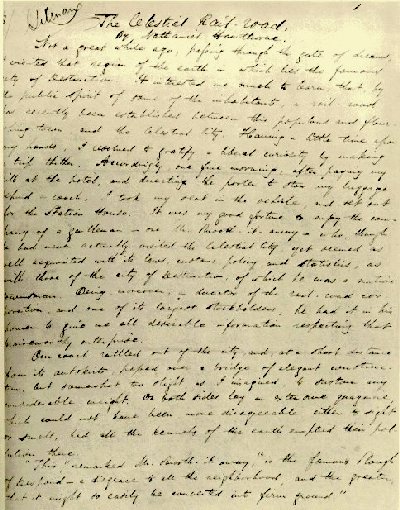 (Literary)
The Celestial Rail-road.
By Nathaniel Hawthorne.
Not a great while ago, passing through the gate of dreams,
visited that region of the earth in which lies the famous
of Destruction. It interested me much to learn that, by
the public spirit of some of the inhabitants, a rail-road
has recently been established between this populous and
town and the Celestial City. Having a little time upon
my hands, I resolved to gratify a liberal curiosity by making
a trip thither. Accordingly, one fine morning, after paying my
at the hotel, and directing the porter to stow my luggage
behind a coach, I took my seat in the vehicle, and set out
for the Station House. It was my good fortune to enjoy the
of a gentleman - one Mr. Smooth-it-away - who, though
had never actually visited the Celestial City, yet seemed as
well acquainted with its laws, customs, policy and statistics, as
with those of the city of Destruction, of which he was a native
townsman. Being, moreover, a director of the rail-road
and one of its largest stockholders, he had it in his
power to give me all desirable information respecting that
enterprise.
Our coach rattled out of the city, and, at a short distance
from its outskirts, passed over a bridge of elegant
but somewhat too slight, as I imagined, to sustain any
considerable weight. On both sides lay an extensive quagmire,
which could not have been more disagreeable either to sight
or smell, had all the kennels of the earth emptied their
there.
"This," remarked Mr. Smooth-it-away, "is the famous Slough
of Despond - a disgrace to all the neighborhood, and the greater,
that it might so easily be converted into firm ground."